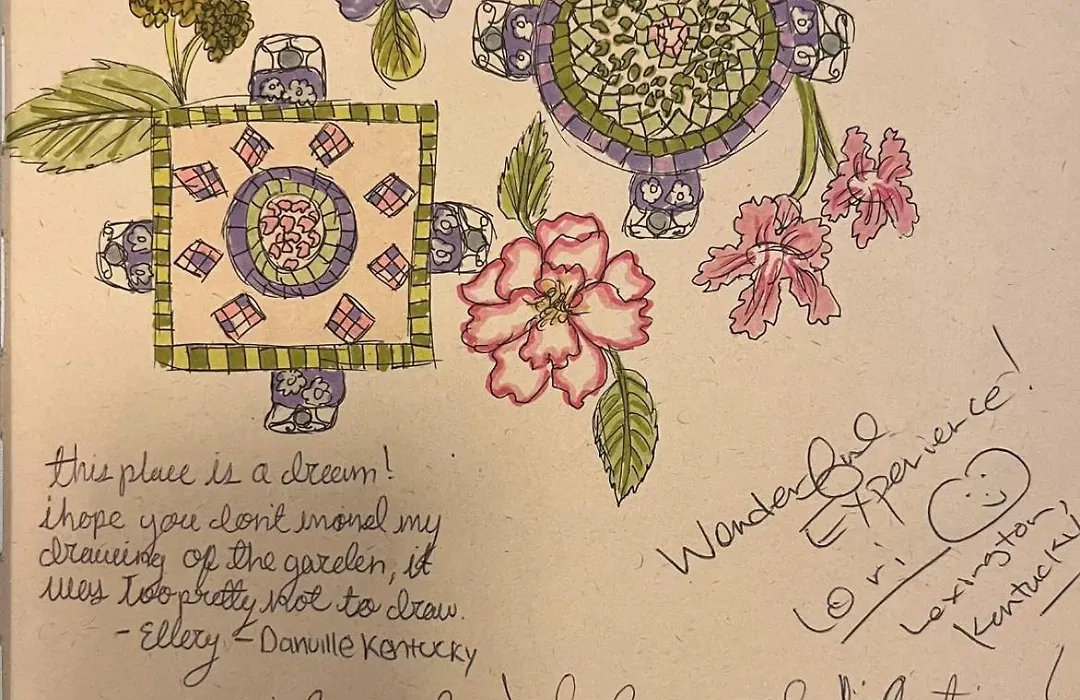 this place is a dream!
i hope you don't mind my
drawing of the garden, it
was too pretty not to draw.
- Ellery - Danville Kentucky
Wonderful
Experience!
Lori
Lexington,
Kentucky